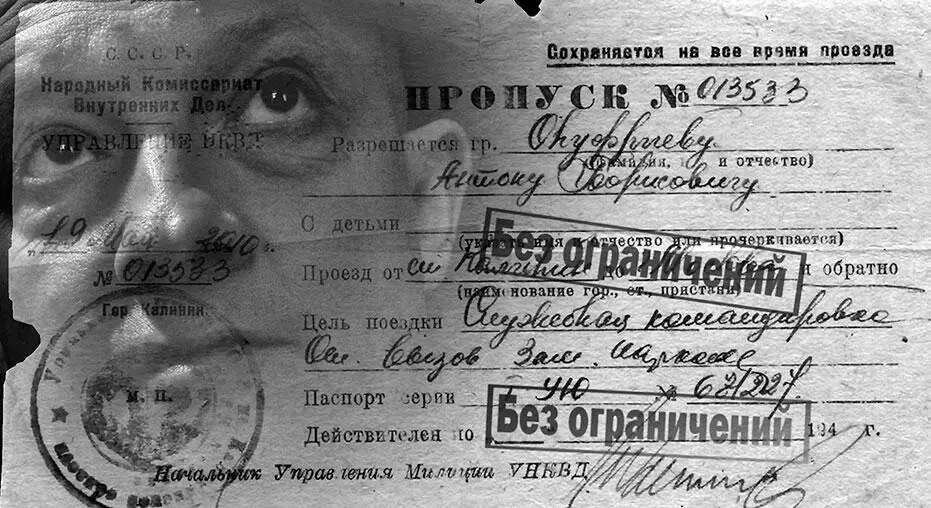 С. С. С. Р.
Народный Комиссариат
Внутренних Дел
УПРАВЛЕНИЕ НКВД
"19" Мая 2010 г.
№ 013533
Гор. Калинин
М. П.
Сохраняется на все время проезда
ПРОПУСК № 013533
Разрешается гр. Онуфриеву
(фамилия, и отчество)
Антону Борисовичу
С детьми
(указать имя и отчество или прочеркивается)
Без ограничений
Проезд от ст Калинин до и обратно
(наименование гор., ст., пристани)
Цель поездки Служебная командировка
Осн. вызов Зам. наркома
Паспорт серии № 627227
Без ограничений
Действителен по 194 г.
Начальник Управления Милиции УНКВД